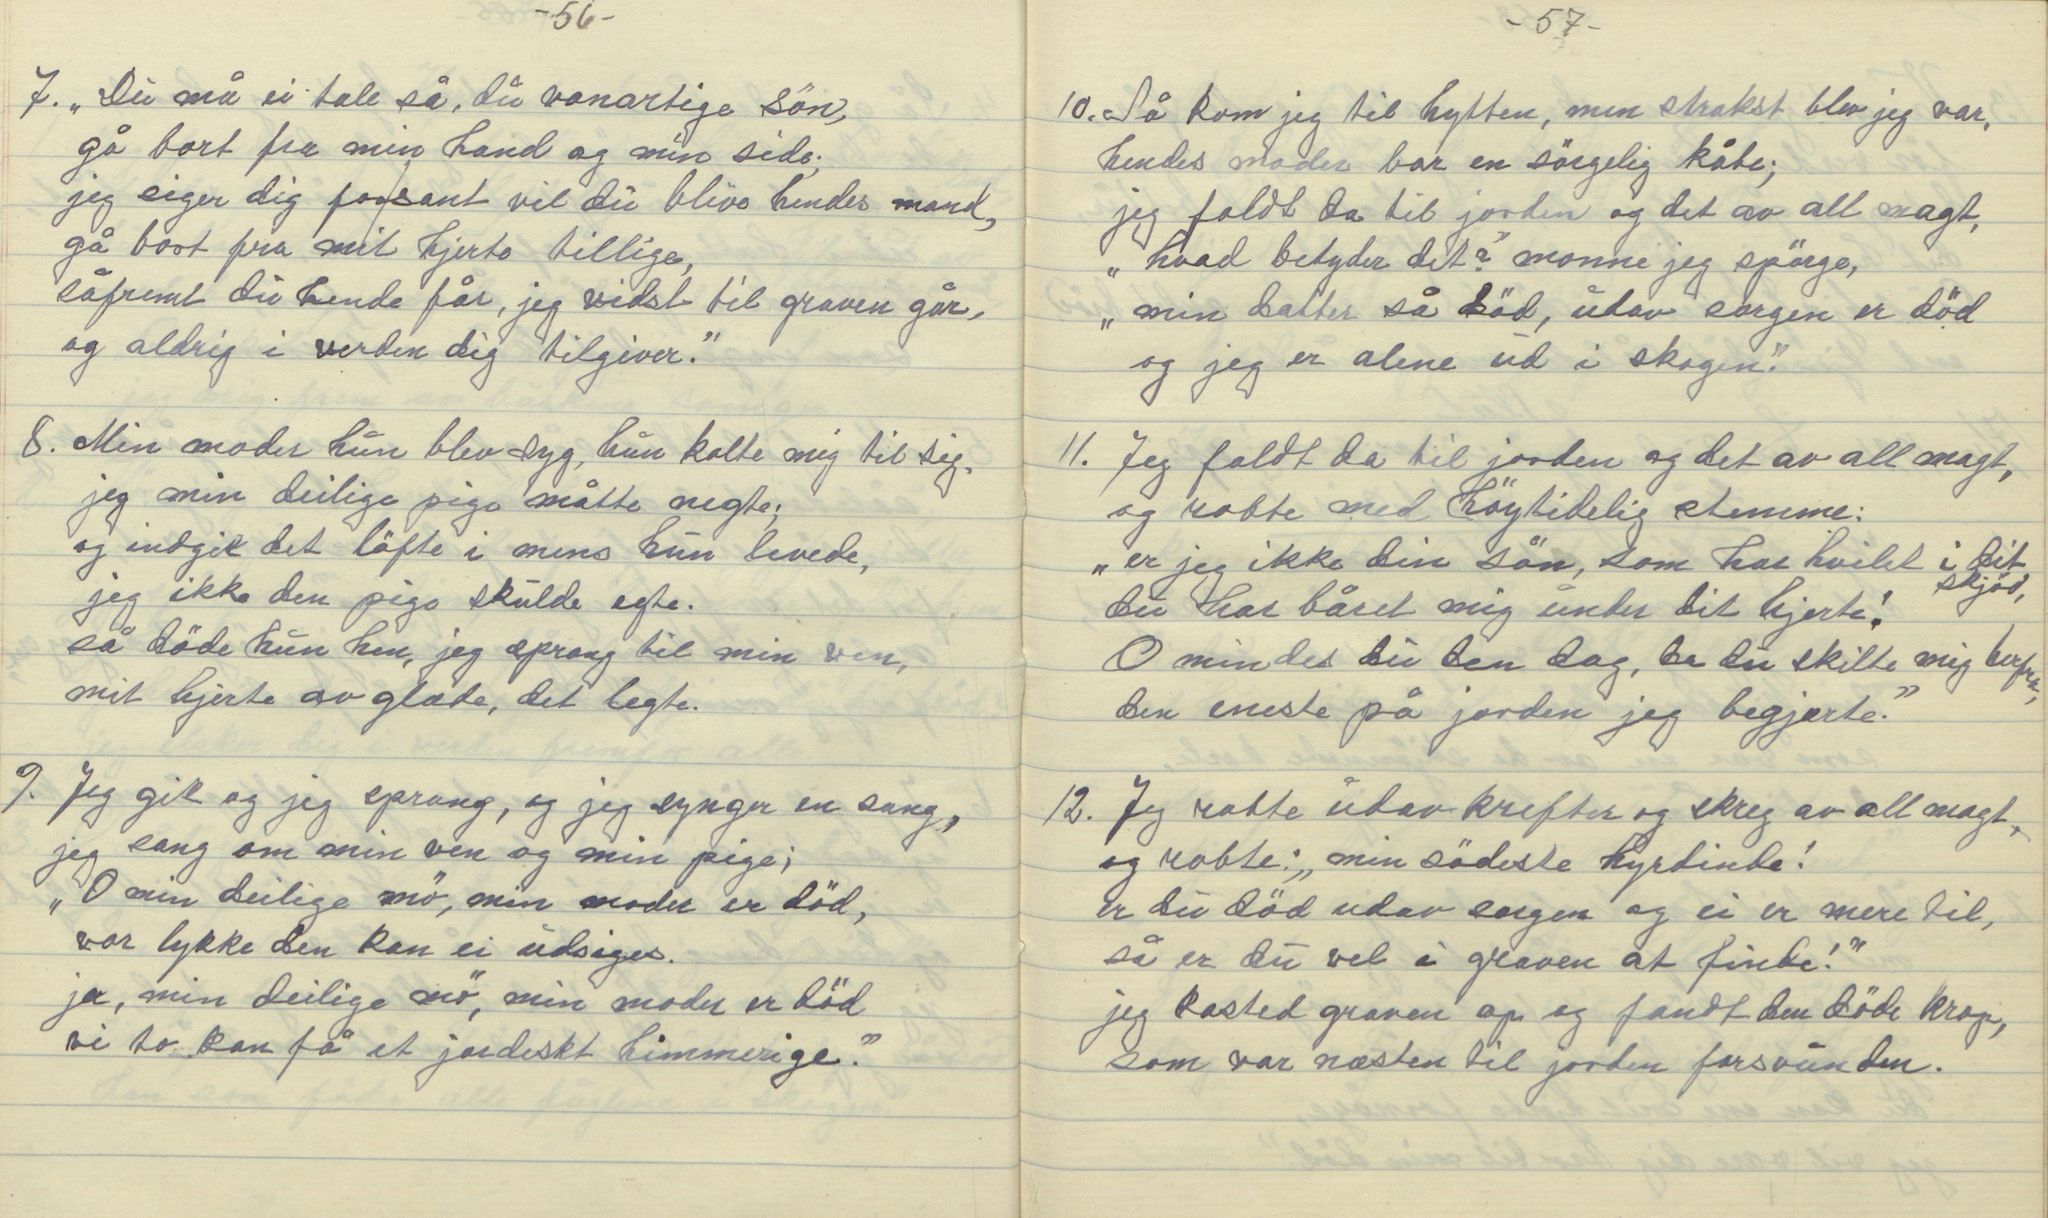 -56-
7. „Du må ei tale så, du vanartige sön,
gå bort fra min hand og min side;
jeg siger dig forsant vil du blive hendes mand,
gå bort fra mit hjerte tillige,
såfremt du hende får, jeg vidst til graven går,
og aldrig i verden dig tilgiver."
8. Min moder hun blev syg, hun kalte mig til sig,
jeg min deilige pige måtte negte;
og indgik det löfte i mens hun levede,
jeg ikke den pige skulde egte.
så döde hun hen, jeg sprang til min ven,
mit hjerte av glæde, det legte.
9. Jeg gik og jeg sprang, og jeg synger en sang,
jeg sang om min ven og min pige;
„O min deilige mö, min moder er död,
vor lykke den kan ei udsiges.
ja, min deilige mö, min moder er död
vi to kan få et jordeskt himmerige."
-57-
10. Så kom jeg til hytten, men strakst blev jeg var,
hendes moder bar en sörgelig kåbe;
jeg faldt da til jorden og det av all magt,
„hvad betyder det?" monne jeg spörge,
„min datter så död, udav sorgen er död
og jeg er alene ud i skogen."
11. Jeg faldt da til jorden og det av all magt,
og robte med höytidelig stemme:
„er jeg ikke din sön, som har hvilet i dit skjöd,
du har båret mig under dit hjerte!
O mindes du den dag, da du skilte mig herfra,
den eneste på jorden jeg begjærte."
12. Jeg robte udav krefter og skreg av all magt,
og robte: „min södeste hyrdinde!
er du död udav sorgen og ei er mere til,
så er du vel i graven at finde!"
jeg kasted graven op og fandt den döde krop,
som var næsten til jorden forsvunden.